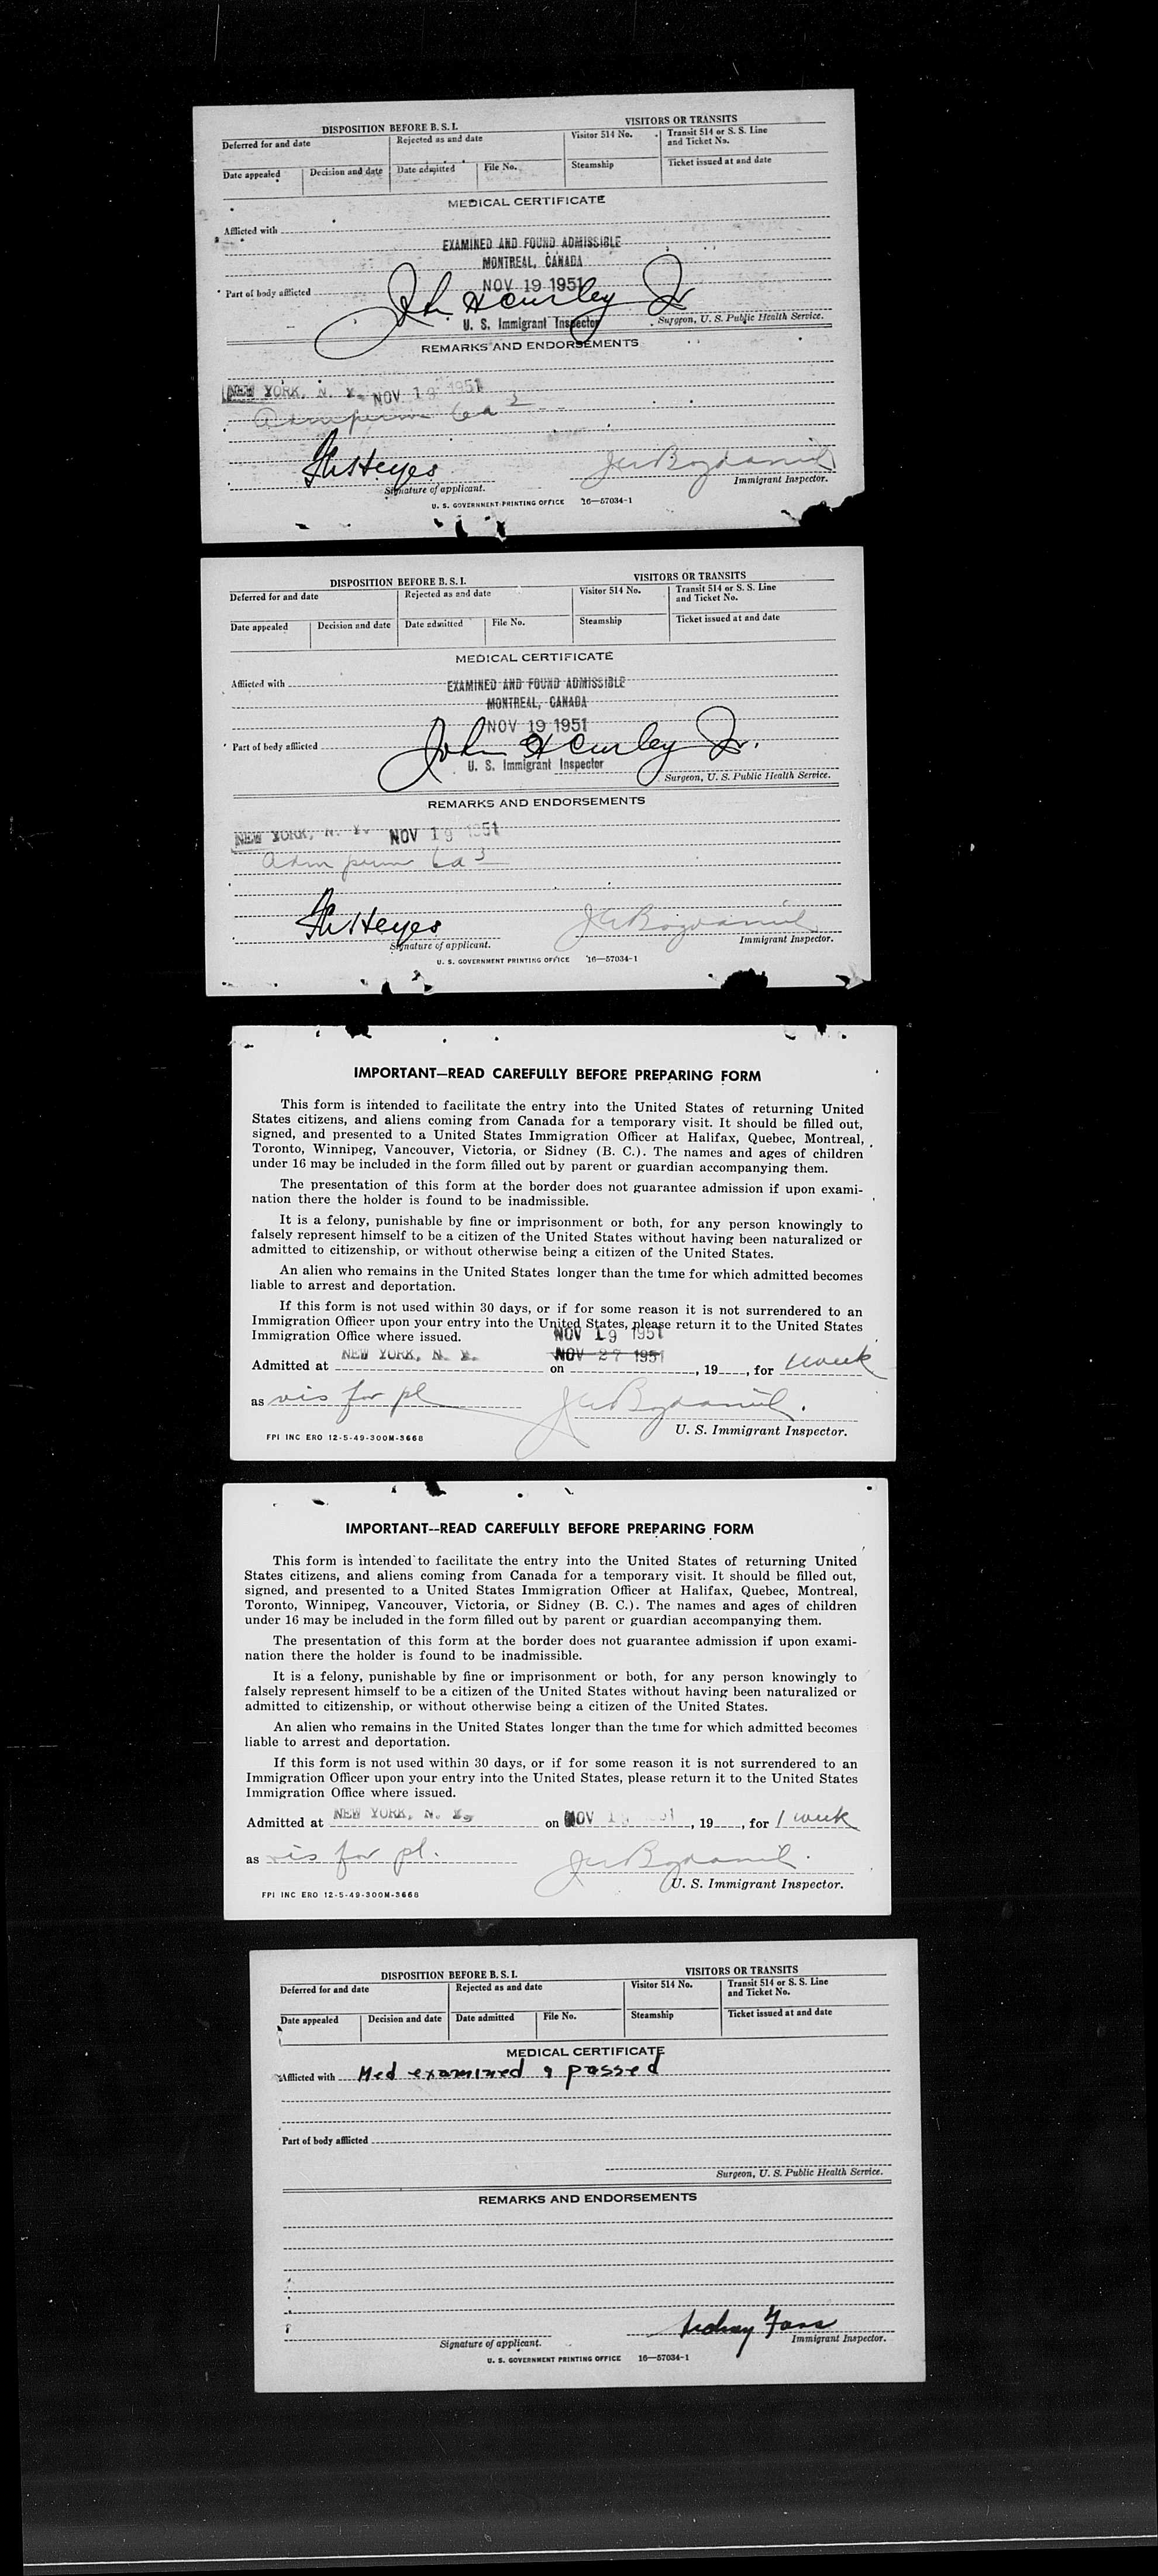 DISPOSITION BEFORE B. S. I.
VISITORS OR TRANSITS
Deferred for and date
Rejected as and date
Visitor 514 No.
Transit 514 or S. S. Line
and Ticket No.
Date appealed
Decision and date
Date admitted
File No.
Steamship
Ticket issued at and date
MEDICAL CERTIFICATE
Afflicted with
EXAMINED AND FOUND ADMISSIBLE
MONTREAL, CANADA
NOV 19 1951
Part of body afflicted
John H Curley Jr
U. S. Immigrant Inspector
Surgeon, U. S. Public Health Service.
REMARKS AND ENDORSEMENTS
NEW YORK, N. Y. NOV 19 1951
Signature of applicant.
Immigrant Inspector.
U. S. GOVERNMENT PRINTING OFFICE 16—57034-1
DISPOSITION BEFORE B. S. I.
VISITORS OR TRANSITS
Deferred for and date
Rejected as and date
Visitor 514 No.
Transit 514 or S. S. Line
and Ticket No.
Date appealed
Decision and date
Date admitted
File No.
Steamship
Ticket issued at and date
MEDICAL CERTIFICATE
Afflicted with
EXAMINED AND FOUND ADMISSIBLE
MONTREAL, CANADA
NOV 19 1951
Part of body afflicted
John H Curley Jr.
U. S. Immigrant Inspector
Surgeon, U. S. Public Health Service.
REMARKS AND ENDORSEMENTS
NEW YORK, N. Y. NOV 19 1951
adm perm 6a3
Signature of applicant.
Immigrant Inspector.
U. S. GOVERNMENT PRINTING OFFICE 16—57034-1
IMPORTANT—READ CAREFULLY BEFORE PREPARING FORM
This form is intended to facilitate the entry into the United States of returning United
States citizens, and aliens coming from Canada for a temporary visit. It should be filled out,
signed, and presented to a United States Immigration Officer at Halifax, Quebec, Montreal,
Toronto, Winnipeg, Vancouver, Victoria, or Sidney (B. C.). The names and ages of children
under 16 may be included in the form filled out by parent or guardian accompanying them.
The presentation of this form at the border does not guarantee admission if upon exami-
nation there the holder is found to be inadmissible.
It is a felony, punishable by fine or imprisonment or both, for any person knowingly to
falsely represent himself to be a citizen of the United States without having been naturalized or
admitted to citizenship, or without otherwise being a citizen of the United States.
An alien who remains in the United States longer than the time for which admitted becomes
liable to arrest and deportation.
If this form is not used within 30 days, or if for some reason it is not surrendered to an
Immigration Officer upon your entry into the United States, please return it to the United States
Immigration Office where issued.
NOV 19 1951
Admitted at NEW YORK, N. Y. on NOV 27 1951, 19 , for 1 week
as vis for pl
U. S. Immigrant Inspector.
FPI INC ERO 12-5-49-300M-3668
IMPORTANT--READ CAREFULLY BEFORE PREPARING FORM
This form is intended to facilitate the entry into the United States of returning United
States citizens, and aliens coming from Canada for a temporary visit. It should be filled out,
signed, and presented to a United States Immigration Officer at Halifax, Quebec, Montreal,
Toronto, Winnipeg, Vancouver, Victoria, or Sidney (B. C.). The names and ages of children
under 16 may be included in the form filled out by parent or guardian accompanying them.
The presentation of this form at the border does not guarantee admission if upon exami-
nation there the holder is found to be inadmissible.
It is a felony, punishable by fine or imprisonment or both, for any person knowingly to
falsely represent himself to be a citizen of the United States without having been naturalized or
admitted to citizenship, or without otherwise being a citizen of the United States.
An alien who remains in the United States longer than the time for which admitted becomes
liable to arrest and deportation.
If this form is not used within 30 days, or if for some reason it is not surrendered to an
Immigration Officer upon your entry into the United States, please return it to the United States
Immigration Office where issued.
Admitted at NEW YORK, N. Y. on NOV , 19 , for 1 week
as vis for pl.
U. S. Immigrant Inspector.
FPI INC ERO 12-5-49-300M-3668
DISPOSITION BEFORE B. S. I.
VISITORS OR TRANSITS
Deferred for and date
Rejected as and date
Visitor 514 No.
Transit 514 or S. S. Line
and Ticket No.
Date appealed
Decision and date
Date admitted
File No.
Steamship
Ticket issued at and date
MEDICAL CERTIFICATE
Afflicted with Med examined & passed
Part of body afflicted
Surgeon, U. S. Public Health Service.
REMARKS AND ENDORSEMENTS
Sidney Fass
Signature of applicant.
Immigrant Inspector.
U. S. GOVERNMENT PRINTING OFFICE 16—57034-1